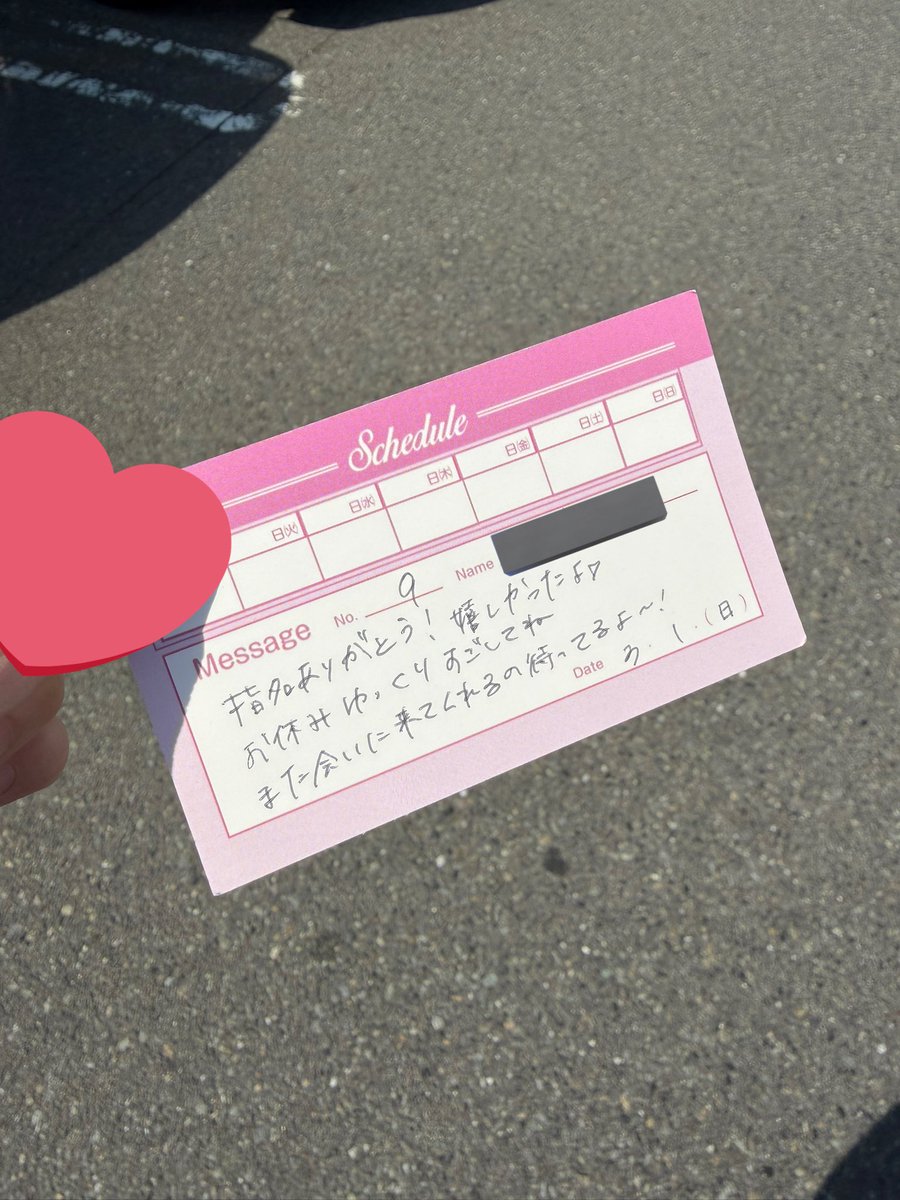 Schedule
日㊋ 日㊌ 日㊍ 日㊎ 日㊏ 日㊐
Message No. 9 Name
指名ありがとう！嬉しかったよ♡
お休みゆっくりすごしてね
また会いに来てくれるの待ってるよ～！
Date 3.1.(日)